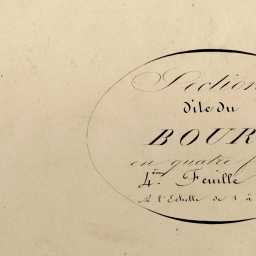 Section
dite du
BOUR
en quatre f
4.ème Feuille
A l'Echelle de 1 à